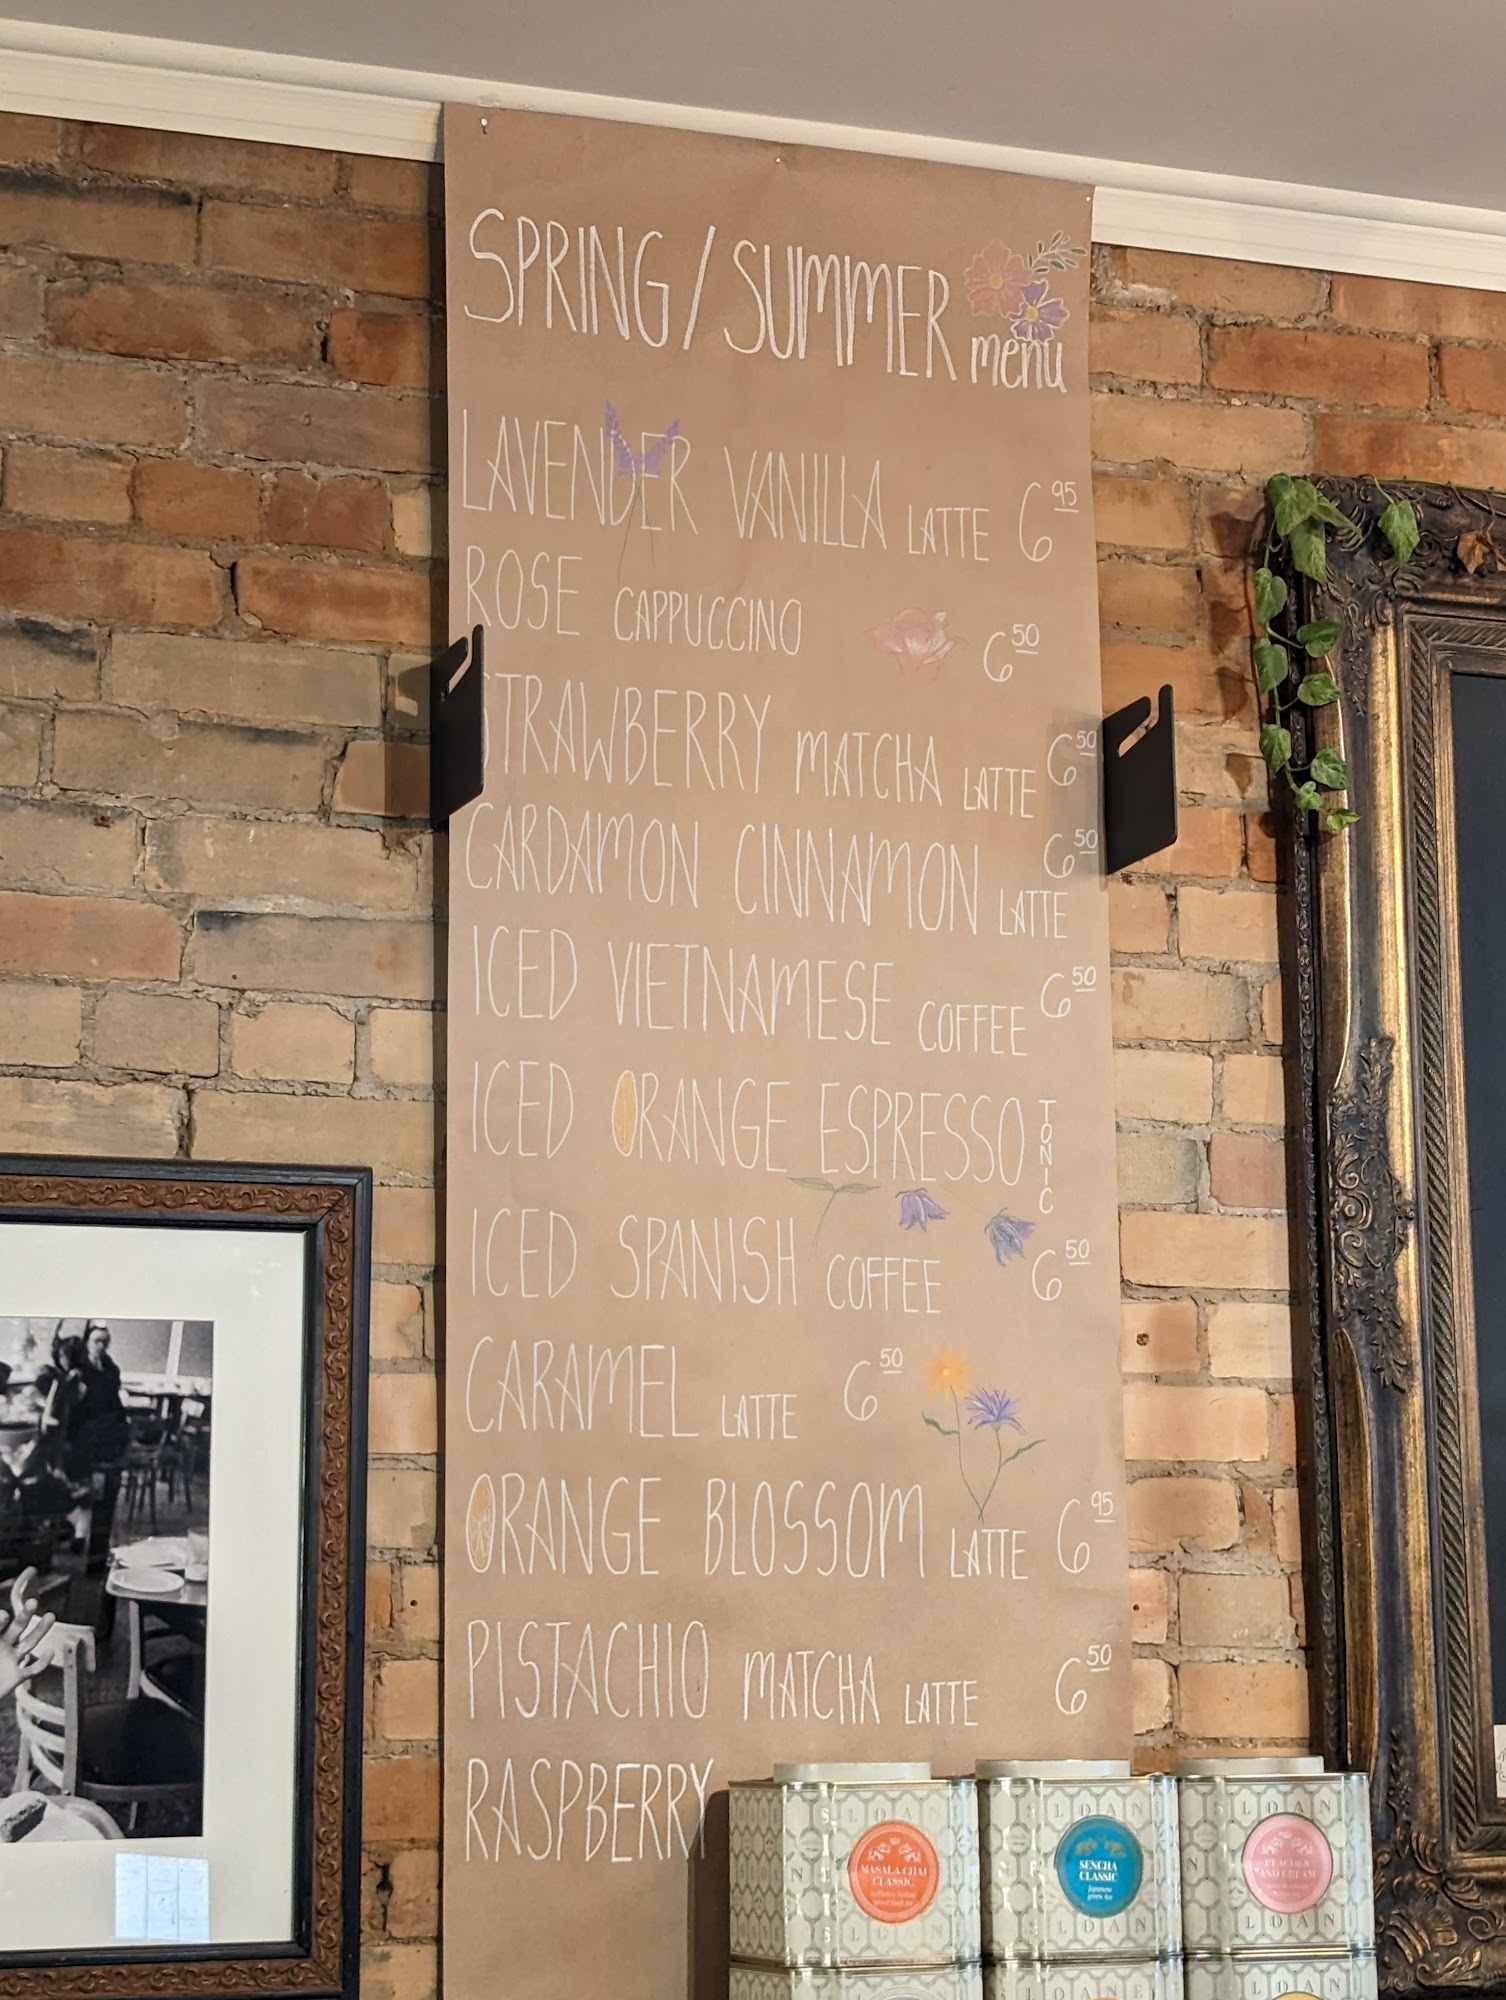 SPRING/SUMMER menu
LAVENDER VANILLA LATTE 6 95
ROSE CAPPUCCINO 6 50
STRAWBERRY MATCHA LATTE 6 50
CARDAMON CINNAMON LATTE 6 50
ICED VIETNAMESE COFFEE 6 50
ICED ORANGE ESPRESSO TONIC
ICED SPANISH COFFEE 6 50
CARAMEL LATTE 6 50
ORANGE BLOSSOM LATTE 6 95
PISTACHIO MATCHA LATTE 6 50
RASPBERRY
SLOAN
MASALA CHAI
CLASSIC
SLOAN
SLOAN
SENCHA
CLASSIC
Japanese
green tea
SLOAN
SLOAN
PEACHES
AND CREAM
SLOAN
SLOANE
SLOAN